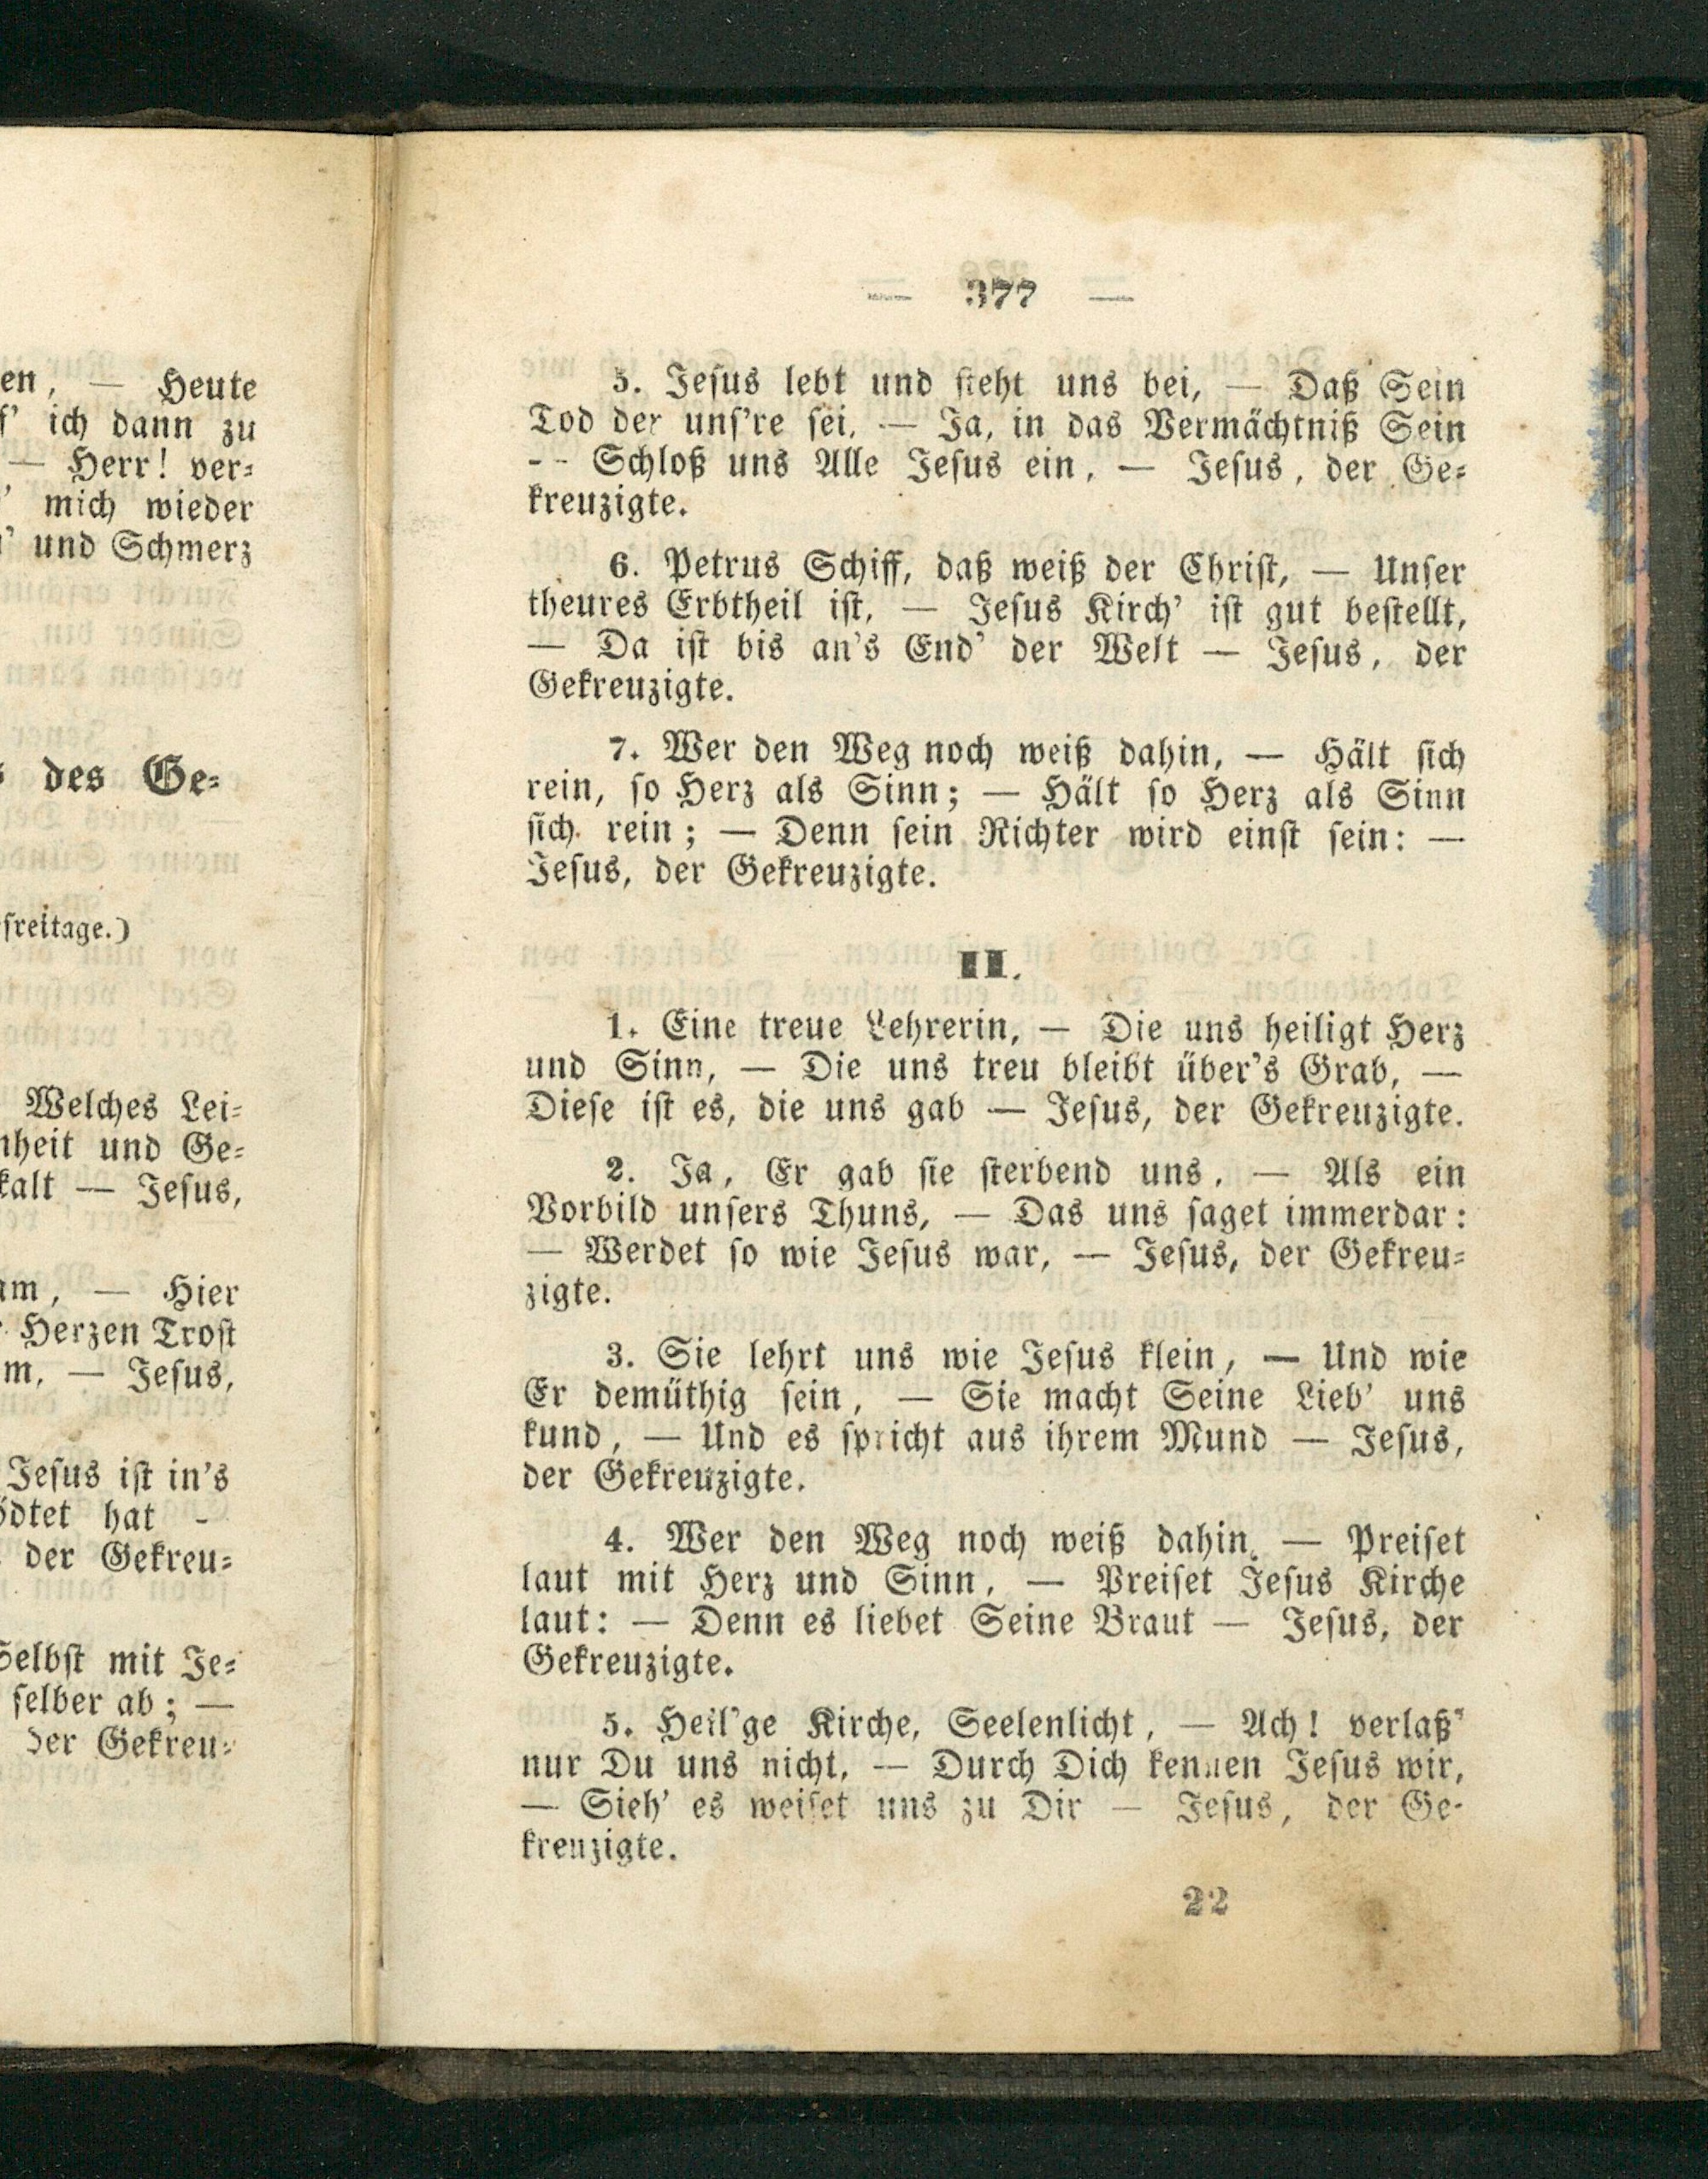 en, — Heute
ich dann zu
— Herr! ver=
mich wieder
und Schmerz
des Ge=
freitage.)
Welches Lei=
nheit und Ge=
kalt — Jesus,
am, — Hier
Herzen Trost
m, — Jesus,
Jesus ist in's
ödtet hat -
der Gekreu=
Selbst mit Je=
selber ab; —
der Gekreu=
— 377 —
5. Jesus lebt und steht uns bei, — Daß Sein
Tod der uns're sei, — Ja, in das Vermächtniß Sein
-- Schloß uns Alle Jesus ein, — Jesus, der Ge=
kreuzigte.
6. Petrus Schiff, daß weiß der Christ, — Unser
theures Erbtheil ist, — Jesus Kirch' ist gut bestellt,
— Da ist bis an's End' der Welt — Jesus, der
Gekreuzigte.
7. Wer den Weg noch weiß dahin, — Hält sich
rein, so Herz als Sinn; — Hält so Herz als Sinn
sich rein; — Denn sein Richter wird einst sein: —
Jesus, der Gekreuzigte.
II.
1. Eine treue Lehrerin, — Die uns heiligt Herz
und Sinn, — Die uns treu bleibt über's Grab, —
Diese ist es, die uns gab — Jesus, der Gekreuzigte.
2. Ja, Er gab sie sterbend uns, — Als ein
Vorbild unsers Thuns, — Das uns saget immerdar:
— Werdet so wie Jesus war, — Jesus, der Gekreu=
zigte.
3. Sie lehrt uns wie Jesus klein, — Und wie
Er demüthig sein, — Sie macht Seine Lieb' uns
kund, — Und es spricht aus ihrem Mund — Jesus,
der Gekreuzigte.
4. Wer den Weg noch weiß dahin, — Preiset
laut mit Herz und Sinn, — Preiset Jesus Kirche
laut: — Denn es liebet Seine Braut — Jesus, der
Gekreuzigte.
5. Heil'ge Kirche, Seelenlicht, — Ach! verlaß'
nur Du uns nicht, — Durch Dich kennen Jesus wir,
— Sieh' es weiset uns zu Dir — Jesus, der Ge-
kreuzigte.
22